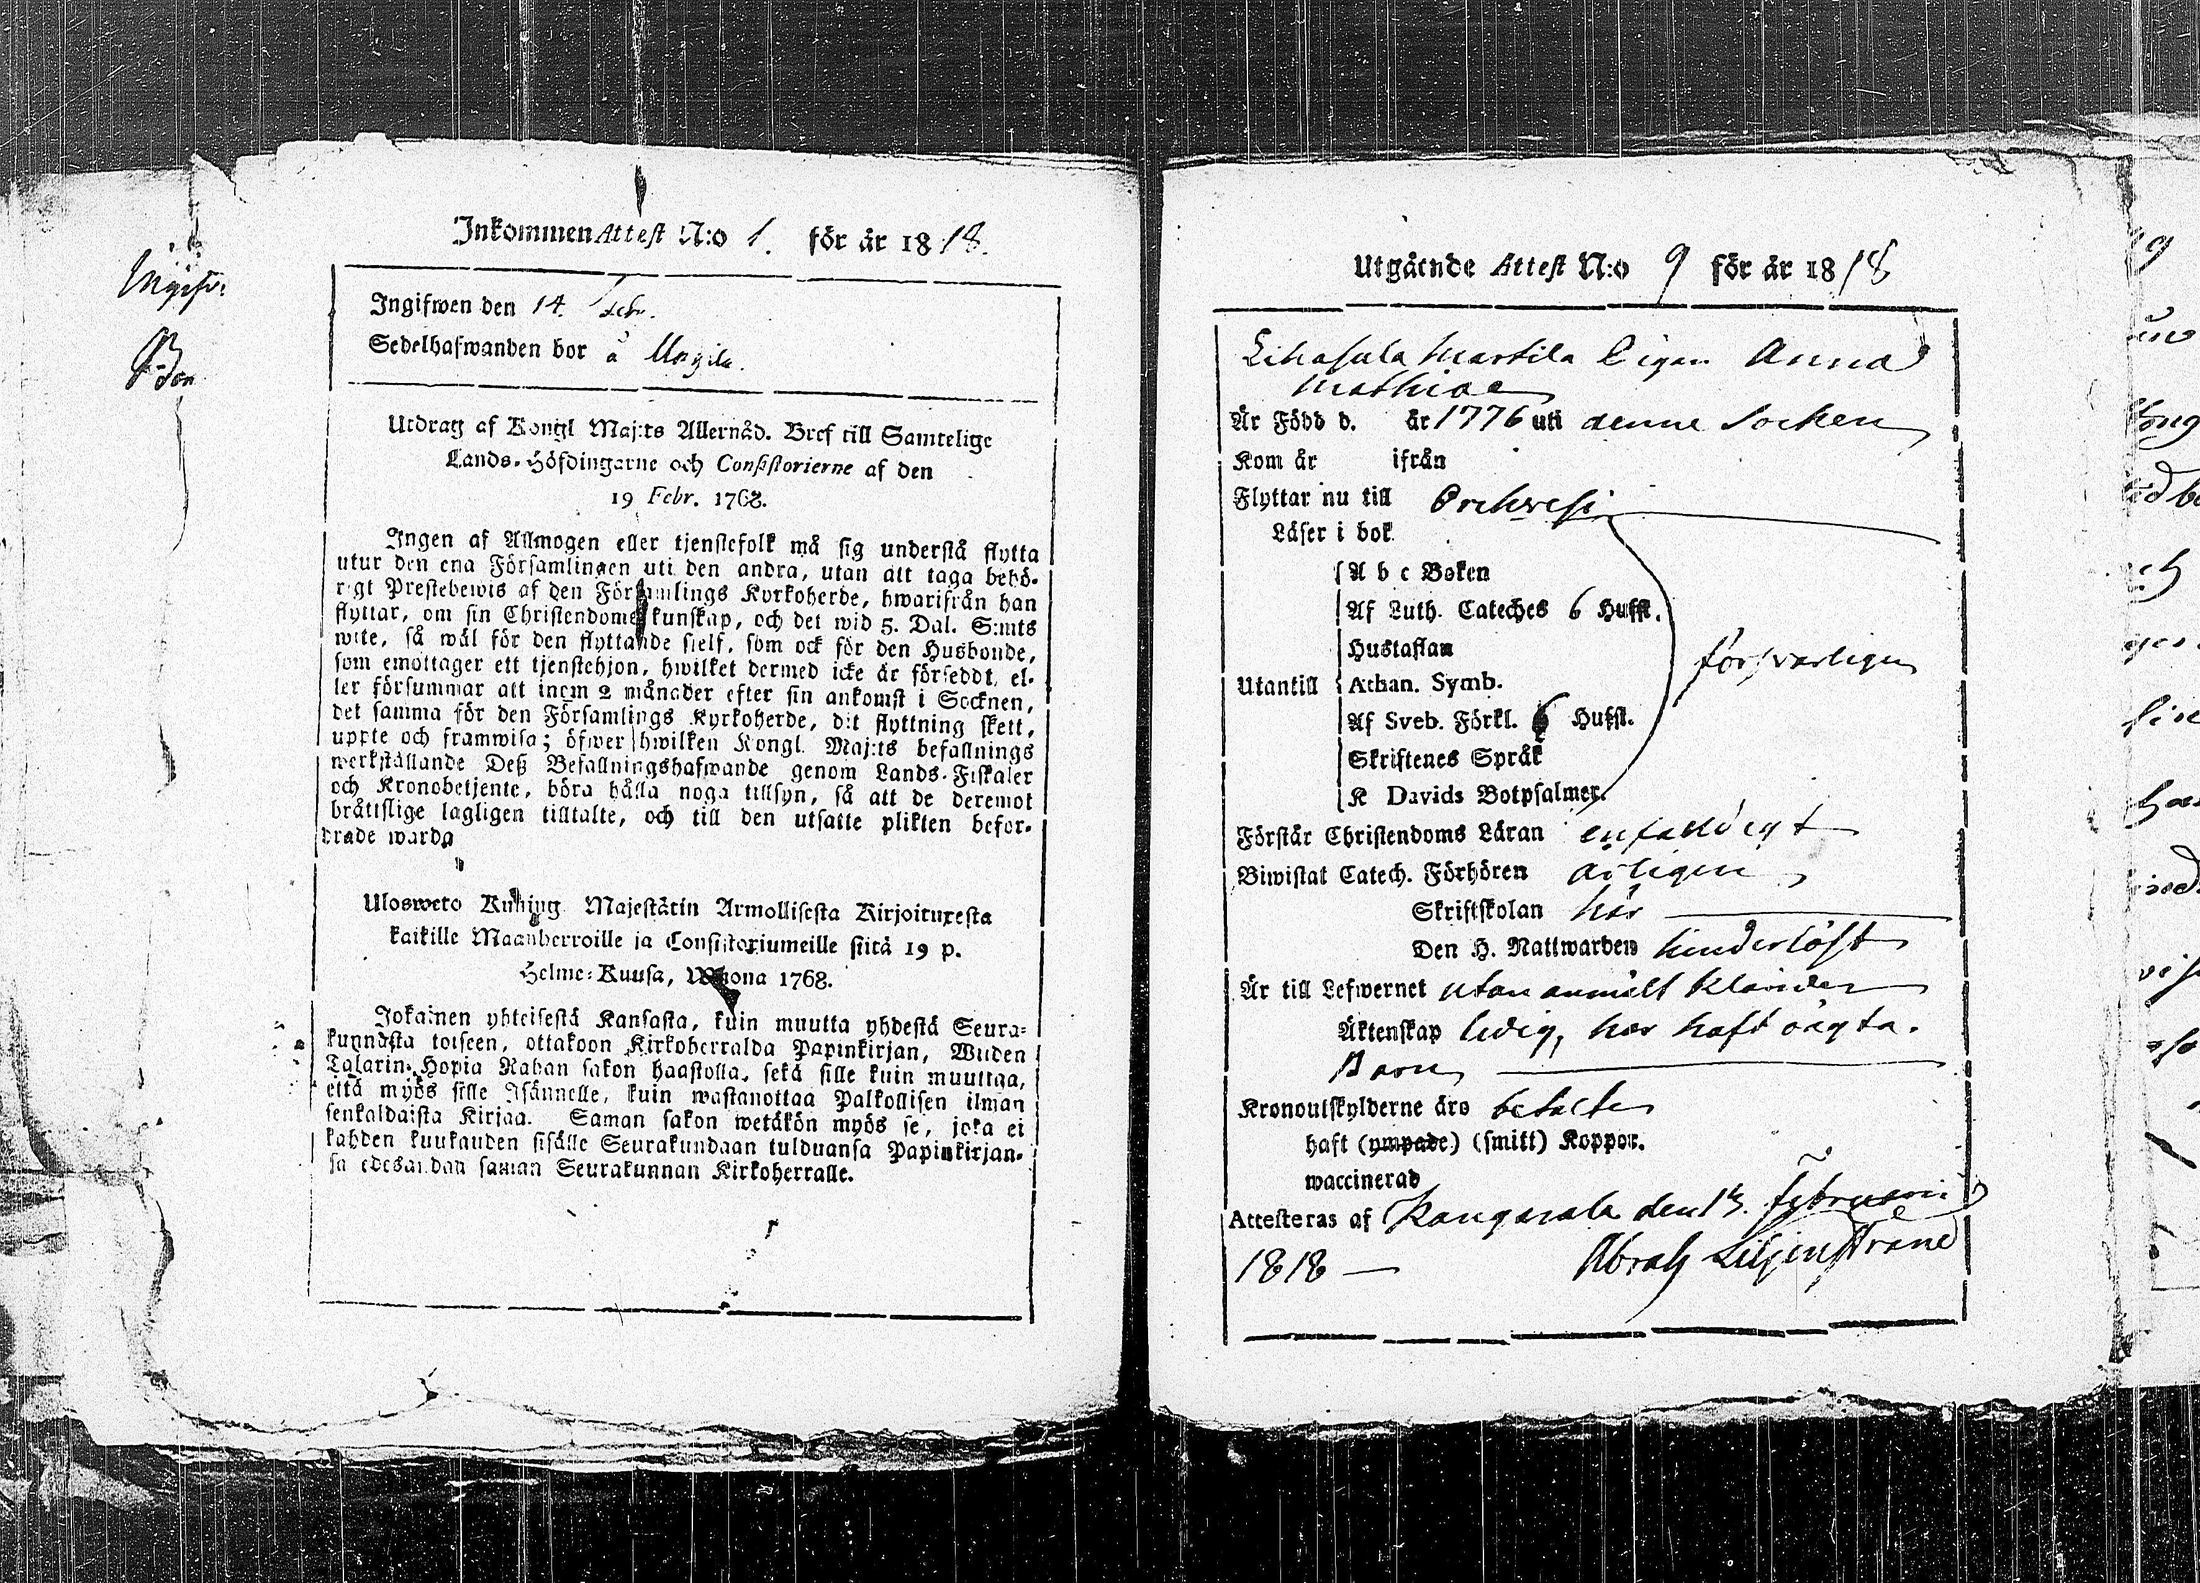 Inkommen Attest N:o 1. för år 1818.
Ingifwen den 14. Febr.
Sedelhafwanden bor å
Utdrag af Kongl Maj:ts Allernåd. Bref till Samtelige
Lands-Höfdingarne och Consistorierne af den
19 Febr. 1768.
Ingen af Allmogen eller tjenstefolk må sig understå flytta
utur den ena Församlingen uti den andra, utan att taga behö-
rigt Prestebewis af den Församlings Kyrkoherde, hwarifrån han
flyttar, om sin Christendoms kunskap, och det wid 5. Dal. S:mts
wite, så wäl för den flyttande sielf, som ock för den Husbonde,
som emottager ett tjenstehjon, hwilket dermed icke är förseddt, el-
ler försummar att inom 2 månader efter sin ankomst i Socknen,
det samma för den Församlings Kyrkoherde, dit flyttning skett,
uppte och framwisa; öfwer hwilken Kongl. Maj:ts befallnings
werkställande Deß Befallningshafwande genom Lands-Fiskaler
och Kronobetjente, böra hålla noga tillsyn, så att de deremot
bråttslige lagligen tilltalte, och till den utsatte plikten befor-
drade warda
Ulosweto Kuning Majestätin Armollisesta Kirjoituxesta
kaikille Maanherroille ja Consistoriumeille siitä 19 p.
Helme-Kuusa, Wuona 1768.
Jokainen yhteisestä Kansasta, kuin muutta yhdestä Seura-
kunnasta toiseen, ottakoon Kirkoherralda Papinkirjan, Wiiden
Talarin Hopia Rahan sakon haastolla, sekä sille kuin muuttaa,
että myös sille Isännelle, kuin wastanottaa Palkollisen ilman
senkaldaista Kirjaa. Saman sakon wetäkön myös se, joka ei
kahden kuukauden sisälle Seurakundaan tulduansa Papinkirjan-
sa edesandan saman Seurakunnan Kirkoherralle.
Utgående Attest N:o 9 för år 1818
Martila Anna
Är Född d. år 1776 uti denne Socken
Kom år ifrån
Flyttar nu till Orehwesi
Läser i bok
A b c Boken
Af Luth. Cateches 6 Hufst.
Hustaflan
försvarligen
Utantill Athan. Symb.
Af Sveb. Förkl. 6 Hufst.
Skriftenes Språk
K Davids Botpsalmer.
Förstår Christendoms Läran enfaldigt
Biwistat Catech. Förhören årligen
Skriftskolan här
Den H. Nattwarden hinderlöst
Är till Lefwernet utan anmält klander
Äktenskap ledig, har haft oägta.
Barn
Kronoutskylderne äro betalte
haft (ympade) (smitt) Koppor.
waccinerad
Attesteras af Kangasala den 13. Februarii
1818 Abrah Liljenstrand